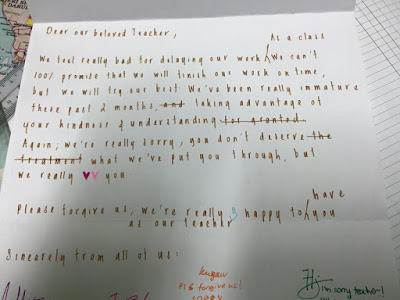 Dear our beloved Teacher,
As a class
We feel really bad for delaying our work. We can't
100% promise that we will finish our work on time,
but we will try our best. We've been really immature
these past 2 months, and taking advantage of
your kindness & understanding for granted.
Again, we're really sorry, you don't deserve the
treatment what we've put you through, but
we really ♥♥ you.
have
Please forgive us, we're really happy to you
as our teacher
Sincerely from all of us:
pls forgive us!
sorry
i'm sorry teacher!